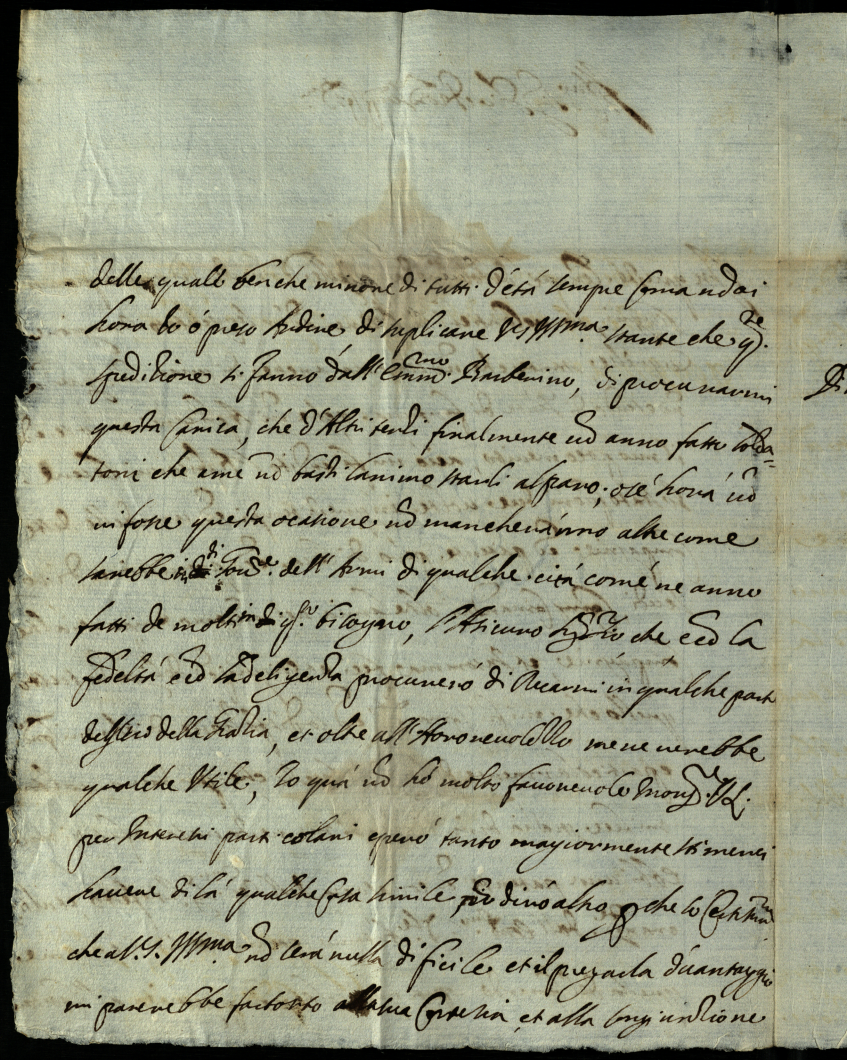 delle quali benche minore di tutti d'età sempre comandai
hora Io ó preso Ardire di suplicare VS Illma stante che q.te
spedizione si fanno dall' Emin.mo Barberino, di procurarmi
questa Carica, che d'Altri sendi finalmente nō anno fatto solda=
toni che ame nō basti lanimo starli alparo; e se horá nō
vi fosse questa ocasione nō mancheránno altre come
sarebbe di dell' Armi di qualche citá comé ne anno
fatti de molti in q.to bisogno, l'Asicuro che e cō la
fedeltá e cō la deligenza procureró di in qualche part
dello della Italia, et oltre all' Honorevolello me ne verebbe
qualche Utile, Io quá nō hó molto favorevole Mons.
per Interessi particolari e peró tanto magiormente stimerei
havere di lá qualche cosa simile, nō diró altro p che so
che a V.S. Illma nō será nulla dificile et il pregarla d'avantaggio
mi parerebbe far torto alla sua Cortesia, et alla congiunzione